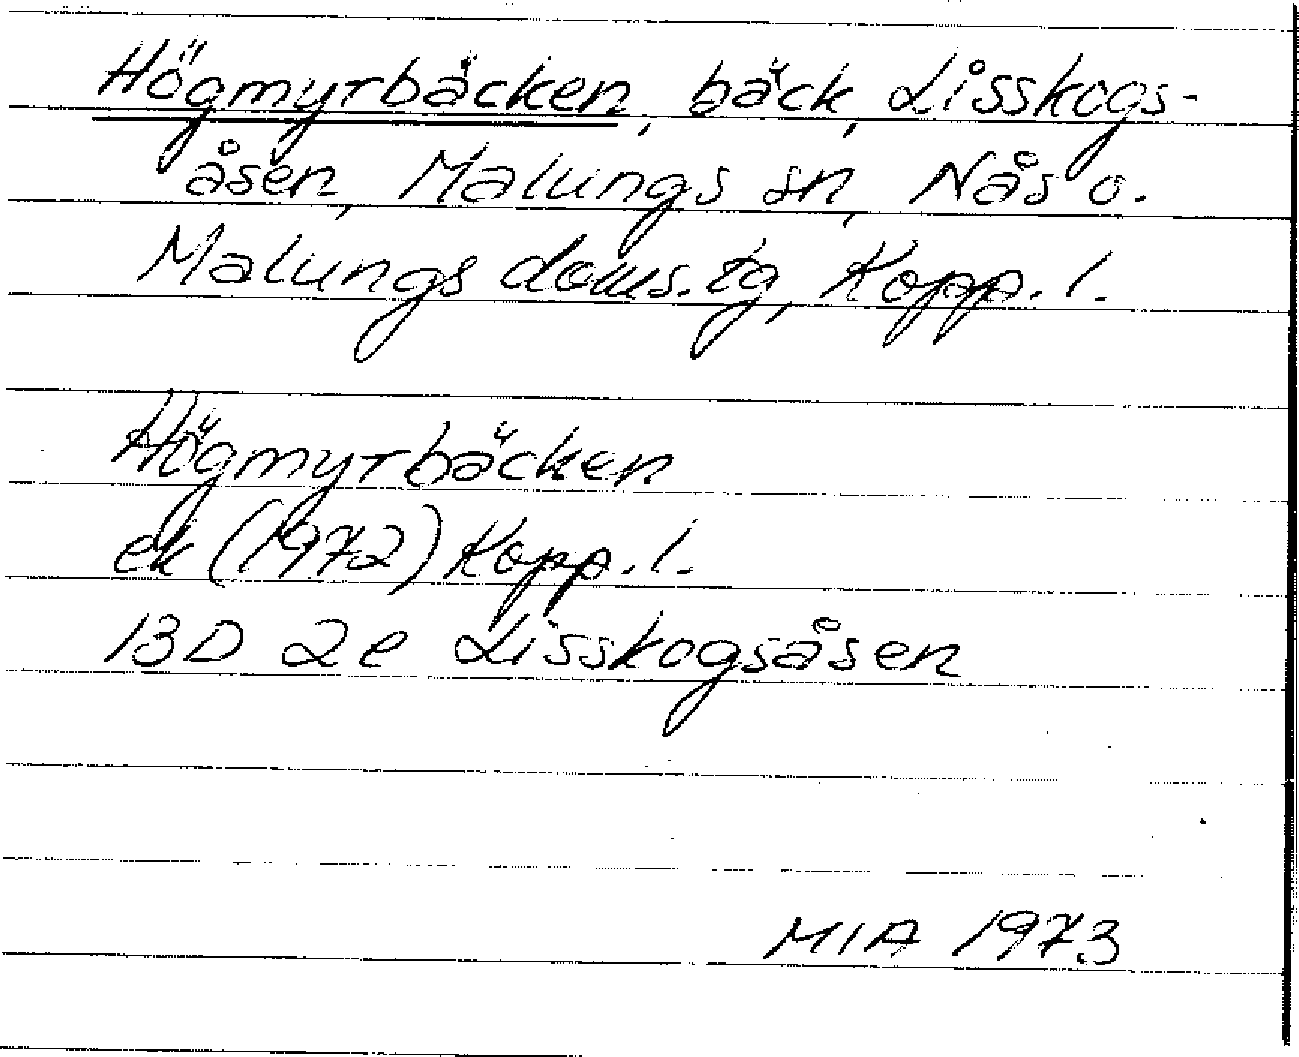 Högmyrbäcken, bäck, Lisskogs-
åsen, Malungs sn, Nås o.
Malungs doms.tg, Kopp. l.
Högmyrbäcken
ek (1972) Kopp. l.
13D 2e Lisskogsåsen
MIA 1973